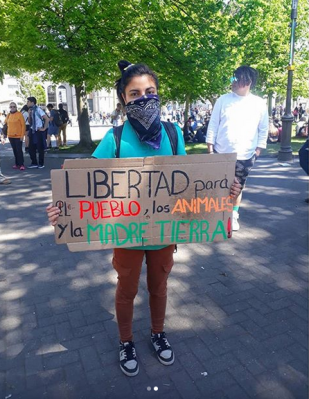 LIBERTAD para
EL PUEBLO, los ANIMALES
y la MADRE TIERRA!